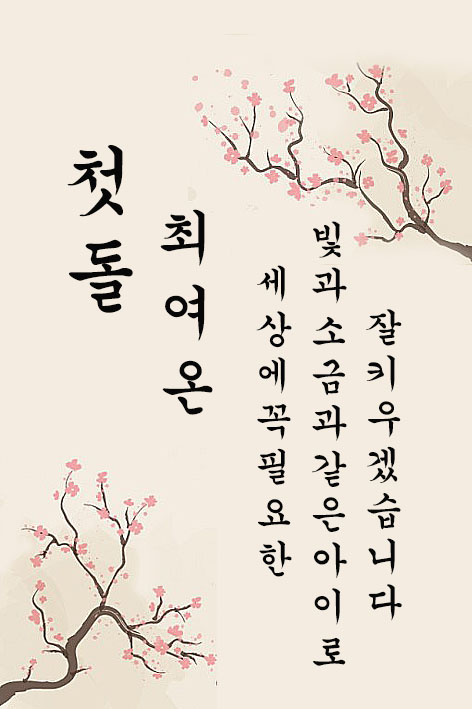 첫돌
최여온
세상에꼭필요한
빛과소금과같은아이로
잘키우겠습니다